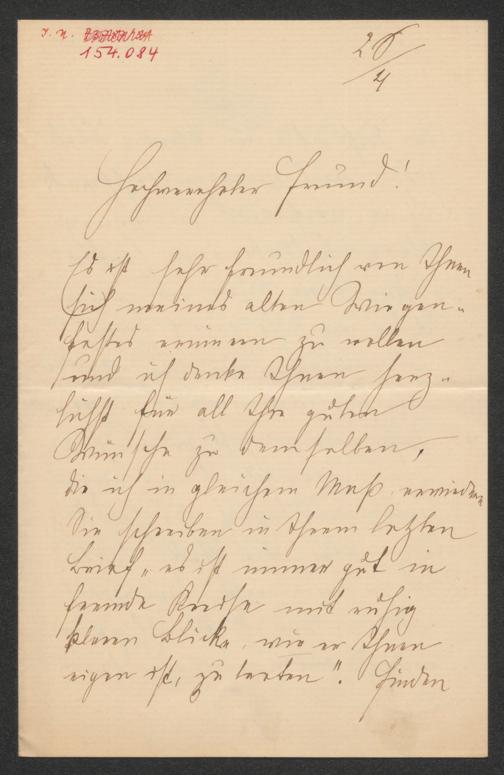 I. N.
154.084
25/4
Hochverehrter Freund!
Es ist sehr freundlich von Ihnen
sich meines alten Wiegen-
festes erinnern zu wollen
und ich danke Ihnen herz-
lichst für all Ihre guten
Wünsche zu demselben,
die ich in gleichem Maß erwiedere.
Sie schreiben in Ihrem letzten
Brief „es ist immer gut in
fremde Kreise mit ruhig
klarem Blick, wie er Ihnen
eigen ist, zu treten". Finden